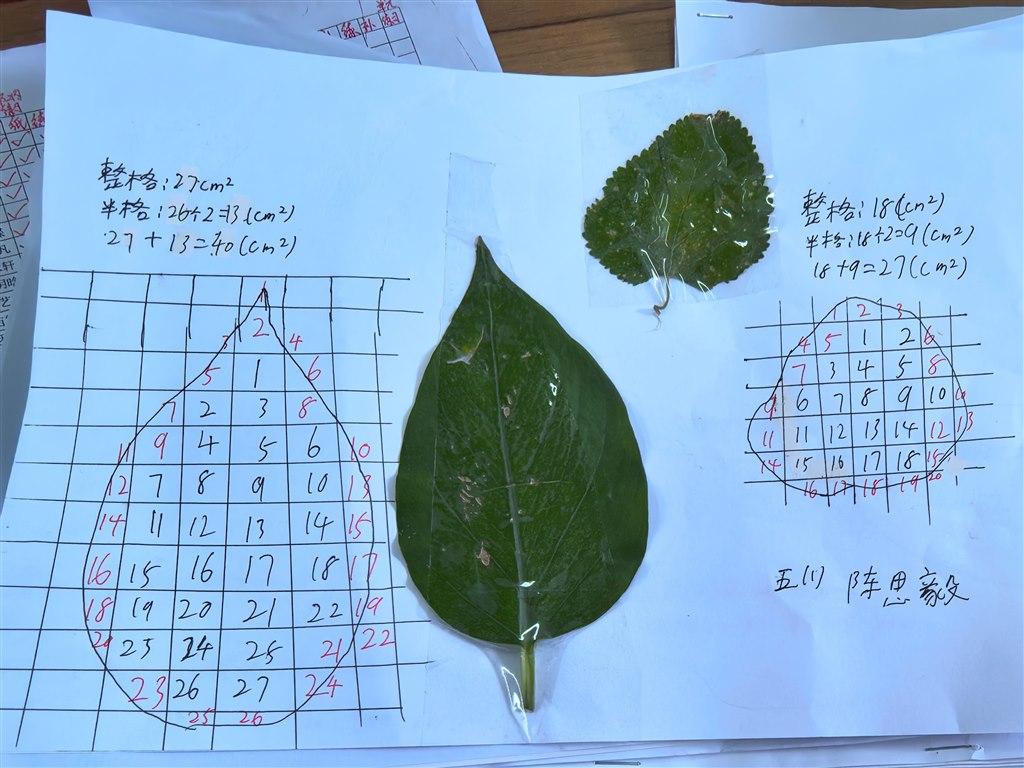 整格:27cm²
半格:26÷2=13(cm²)
27+13=40(cm²)
1
2
3 4
5 1 6
7 2 3 8
11 9 4 5 6 10
12 7 8 9 10 13
14 11 12 13 14 15
16 15 16 17 18 17
18 19 20 21 22 19
20 23 24 25 21 22
23 26 27 24
25 26
整格:18(cm²)
半格:18÷2=9(cm²)
18+9=27(cm²)
1 2 3
4 5 1 2 6
7 3 4 5 8
9 6 7 8 9 10 10
11 11 12 13 14 12 13
14 15 16 17 18 15
16 17 18 19 20
五(1) 陈思毅